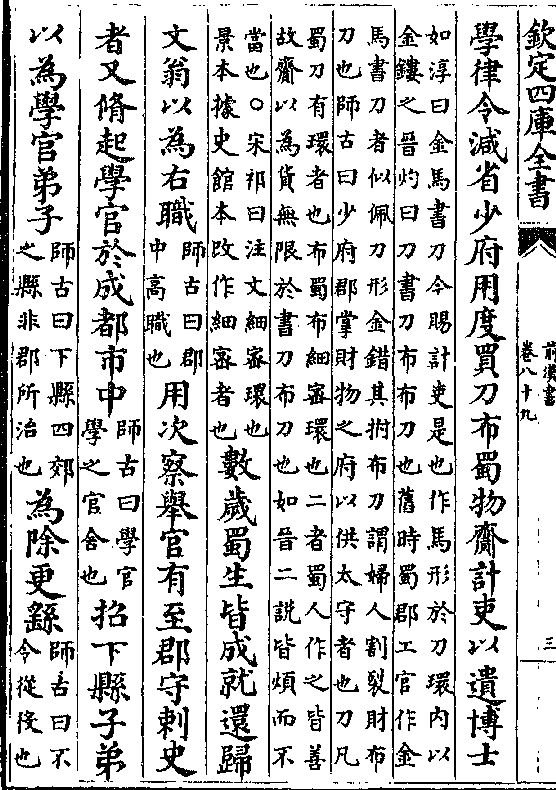 欽定四庫全書
前漢書
卷八十九
三
學律令減省少府用度買刀布蜀物齎計吏以遺博士
如淳曰金馬書刀今賜計吏是也作馬形於刀環内以
金鏤之晉灼曰刀書刀布布刀也舊時蜀郡工官作金
馬書刀者似佩刀形金錯其拊布刀謂婦人割裂財布
刀也師古曰少府郡掌財物之府以供太守者也刀凡
蜀刀有環者也布蜀布細密環也二者蜀人作之皆善
故齎以為貨無限於書刀布刀也如晉二説皆煩而不
當也○宋祁曰注文細密環也
景本據史館本改作細密者也
數歲蜀生皆成就還歸
文翁以為右職
師古曰郡
中高職也
用次察舉官有至郡守刺史
者又脩起學官於成都市中
師古曰學官
學之官舍也
招下縣子弟
以為學官弟子
師古曰下縣四郊
之縣非郡所治也
為除更繇
師古曰不
令從役也